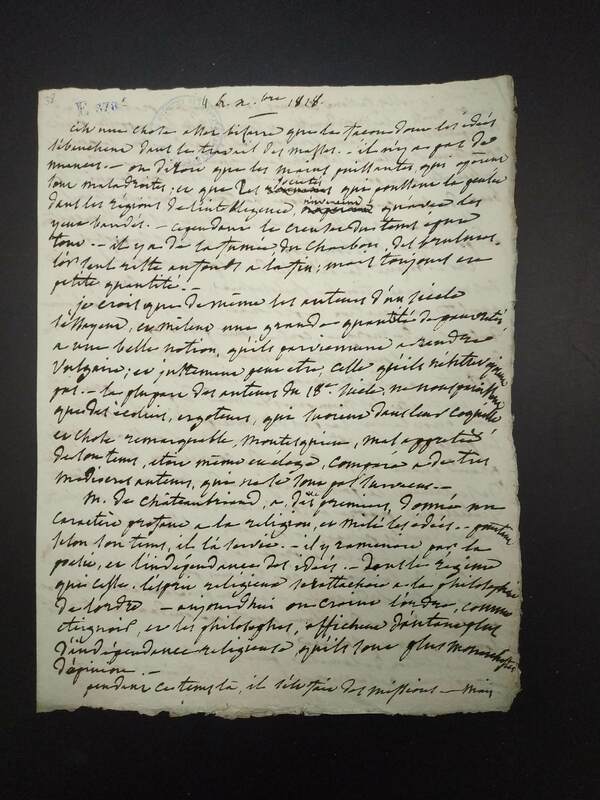 F. 378
4 h. x.bre 1818.
c'est une chose assez bisarre que la facon dont les idées
s'ébauchent dans le travail des masses. – il n'y a pas de
nuances. – on diroit que les mains puissantes, qui opèrent
sont maladroites; et que les sociétés qui poussent la pensée
dans les régions de l'intelligence, n'opèrent qu'avec des
yeux bandés. – cependant le creuset du tems épure
tout. – il y a de la fumée du charbon, des
l'or seul reste au fonds a la fin; mais toujours en
petite quantité. –
je crois que de même les auteurs d'un siècle
s'essayent, en mêlant une grande quantité de pauvretés
a une belle notion, qu'ils parviennent a rendre
vulgaire; et justement peut etre, celle qu'ils n'
pas. – la plupart des auteurs du 18e siècle, ne nous paroissent
que des écoliers, ergoteurs, qui vivoient dans leur coquille
et chose remarquable, Montesquieu, mal apprécié
de son tems, etoit même en éloge, comparé a de tres
médiocres auteurs, qui ne se sont pas survécus. –
M. de Châteaubriand, a, des premiers, donné un
caractère profane a la religion, et mêlé les idées. – pourtant
selon son tems, il l'a servie. – il y ramenoit par la
poésie, et l'indépendance des idées. – dans le regime
qui cesse l'esprit religieux se rattachoit a la philosophie
de l'ordre – aujourd'hui on craint l'ordre, comme
eteignoir, et les philosophes, affichent d'autant plus
d'indépendance religieuse, qu'ils sont plus monarchistes
d'opinion. –
pendant ce tems là, il s'est fait des missions – mais